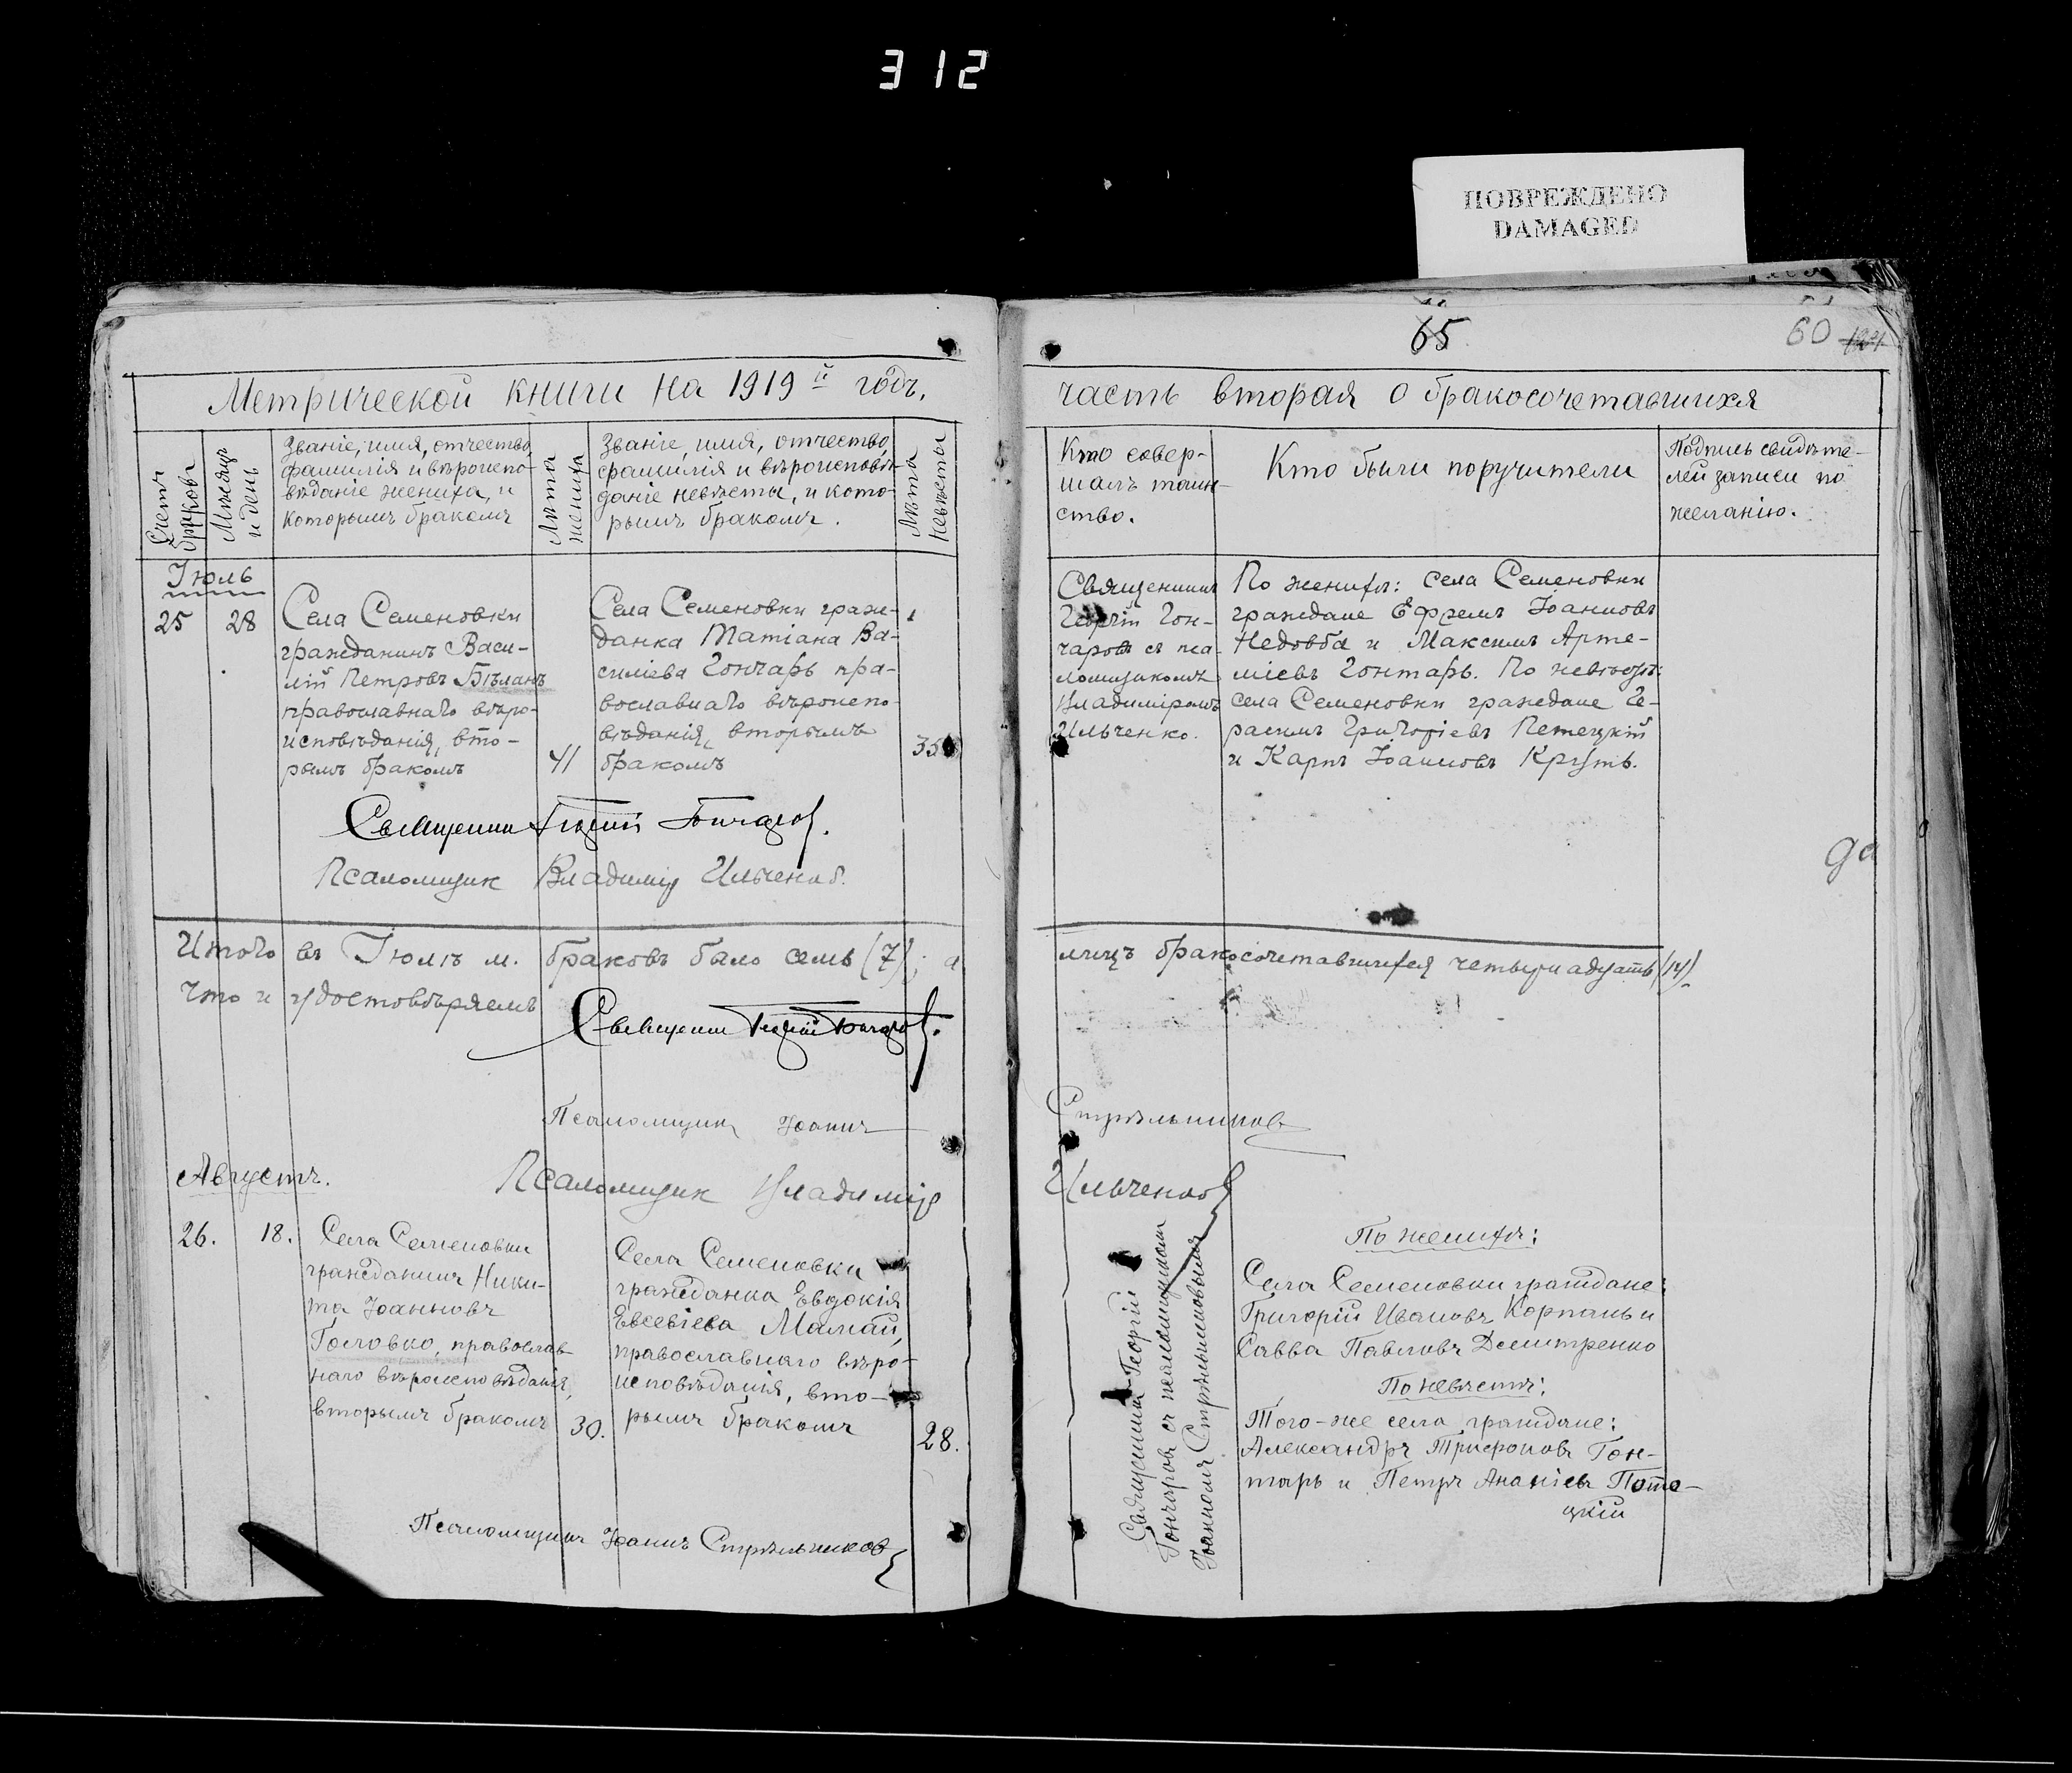 312
ПОВРЕЖДЕНО
DAMAGED
65
60
Метрической книги на 1919 й годъ,
часть вторая о бракосочетавшихся
Счетъ браковъ
Мѣсяцъ и день
Званіе, имя, отчество,
фамилія и вѣроиспо-
вѣданіе жениха, и
которымъ бракомъ
Лѣта жениха
Званіе, имя, отчество,
фамилія и вѣроисповѣ-
даніе невѣсты, и кото-
рымъ бракомъ.
Лѣта невѣсты
Кто совер-
шалъ таин-
ство.
Кто были поручители
Подпись свидѣте-
лей записи по
желанію.
Іюль
25
28
Села Семеновки
гражданинъ Васи-
лій Петровъ Бѣланъ
православнаго вѣро-
исповѣданія, вто-
рымъ бракомъ
41
Села Семеновки граж-
данка Татіана Ва-
силіева Гончарь пра-
вославнаго вѣроиспо-
вѣданія, вторымъ
бракомъ
35
Священникъ
Георгій Гон-
чаровъ съ пса-
ломщикомъ
Владиміромъ
Ильченко.
По женихѣ: села Семеновки
граждане Ефремъ Іоанновъ
Недовба и Максимъ Арте-
міевъ Гонтарь. По невѣстѣ:
села Семеновки граждане Ге-
расимъ Григоріевъ Петецкій
и Карпъ Іоанновъ Круть.
Священник Георгій Гончаров.
Псаломщик Владимір Ильченко.
Итого въ Іюлѣ м. браковъ было семь (7); а
лицъ бракосочетавшихся четырнадцать (14)
что и удостовѣряемъ
Священник Георгій Гончаров.
Псаломщикъ Іоаннъ
Стрѣльниковъ
Августъ.
Псаломщик Владимір
Ильченко
26.
18.
Села Семеновки
гражданинъ Ники-
та Іоанновъ
Головко, православ-
наго вѣроисповѣданія,
вторымъ бракомъ
30.
Села Семеновки
гражданка Евдокія
Евсевіева Мамай,
православнаго вѣро-
исповѣданія, вто-
рымъ бракомъ
28.
Священникъ Георгій
Гончаровъ съ псаломщикомъ
Іоанномъ Стрѣльниковымъ
По женихѣ:
Села Семеновки граждане:
Григорій Ивановъ Корпань и
Савва Павловъ Демитренко
По невѣстѣ:
Того-же села граждане:
Александръ Трифоновъ Гон-
тарь и Петръ Ананіевъ Поте-
цкій
Псаломщикъ Іоаннъ Стрѣльников